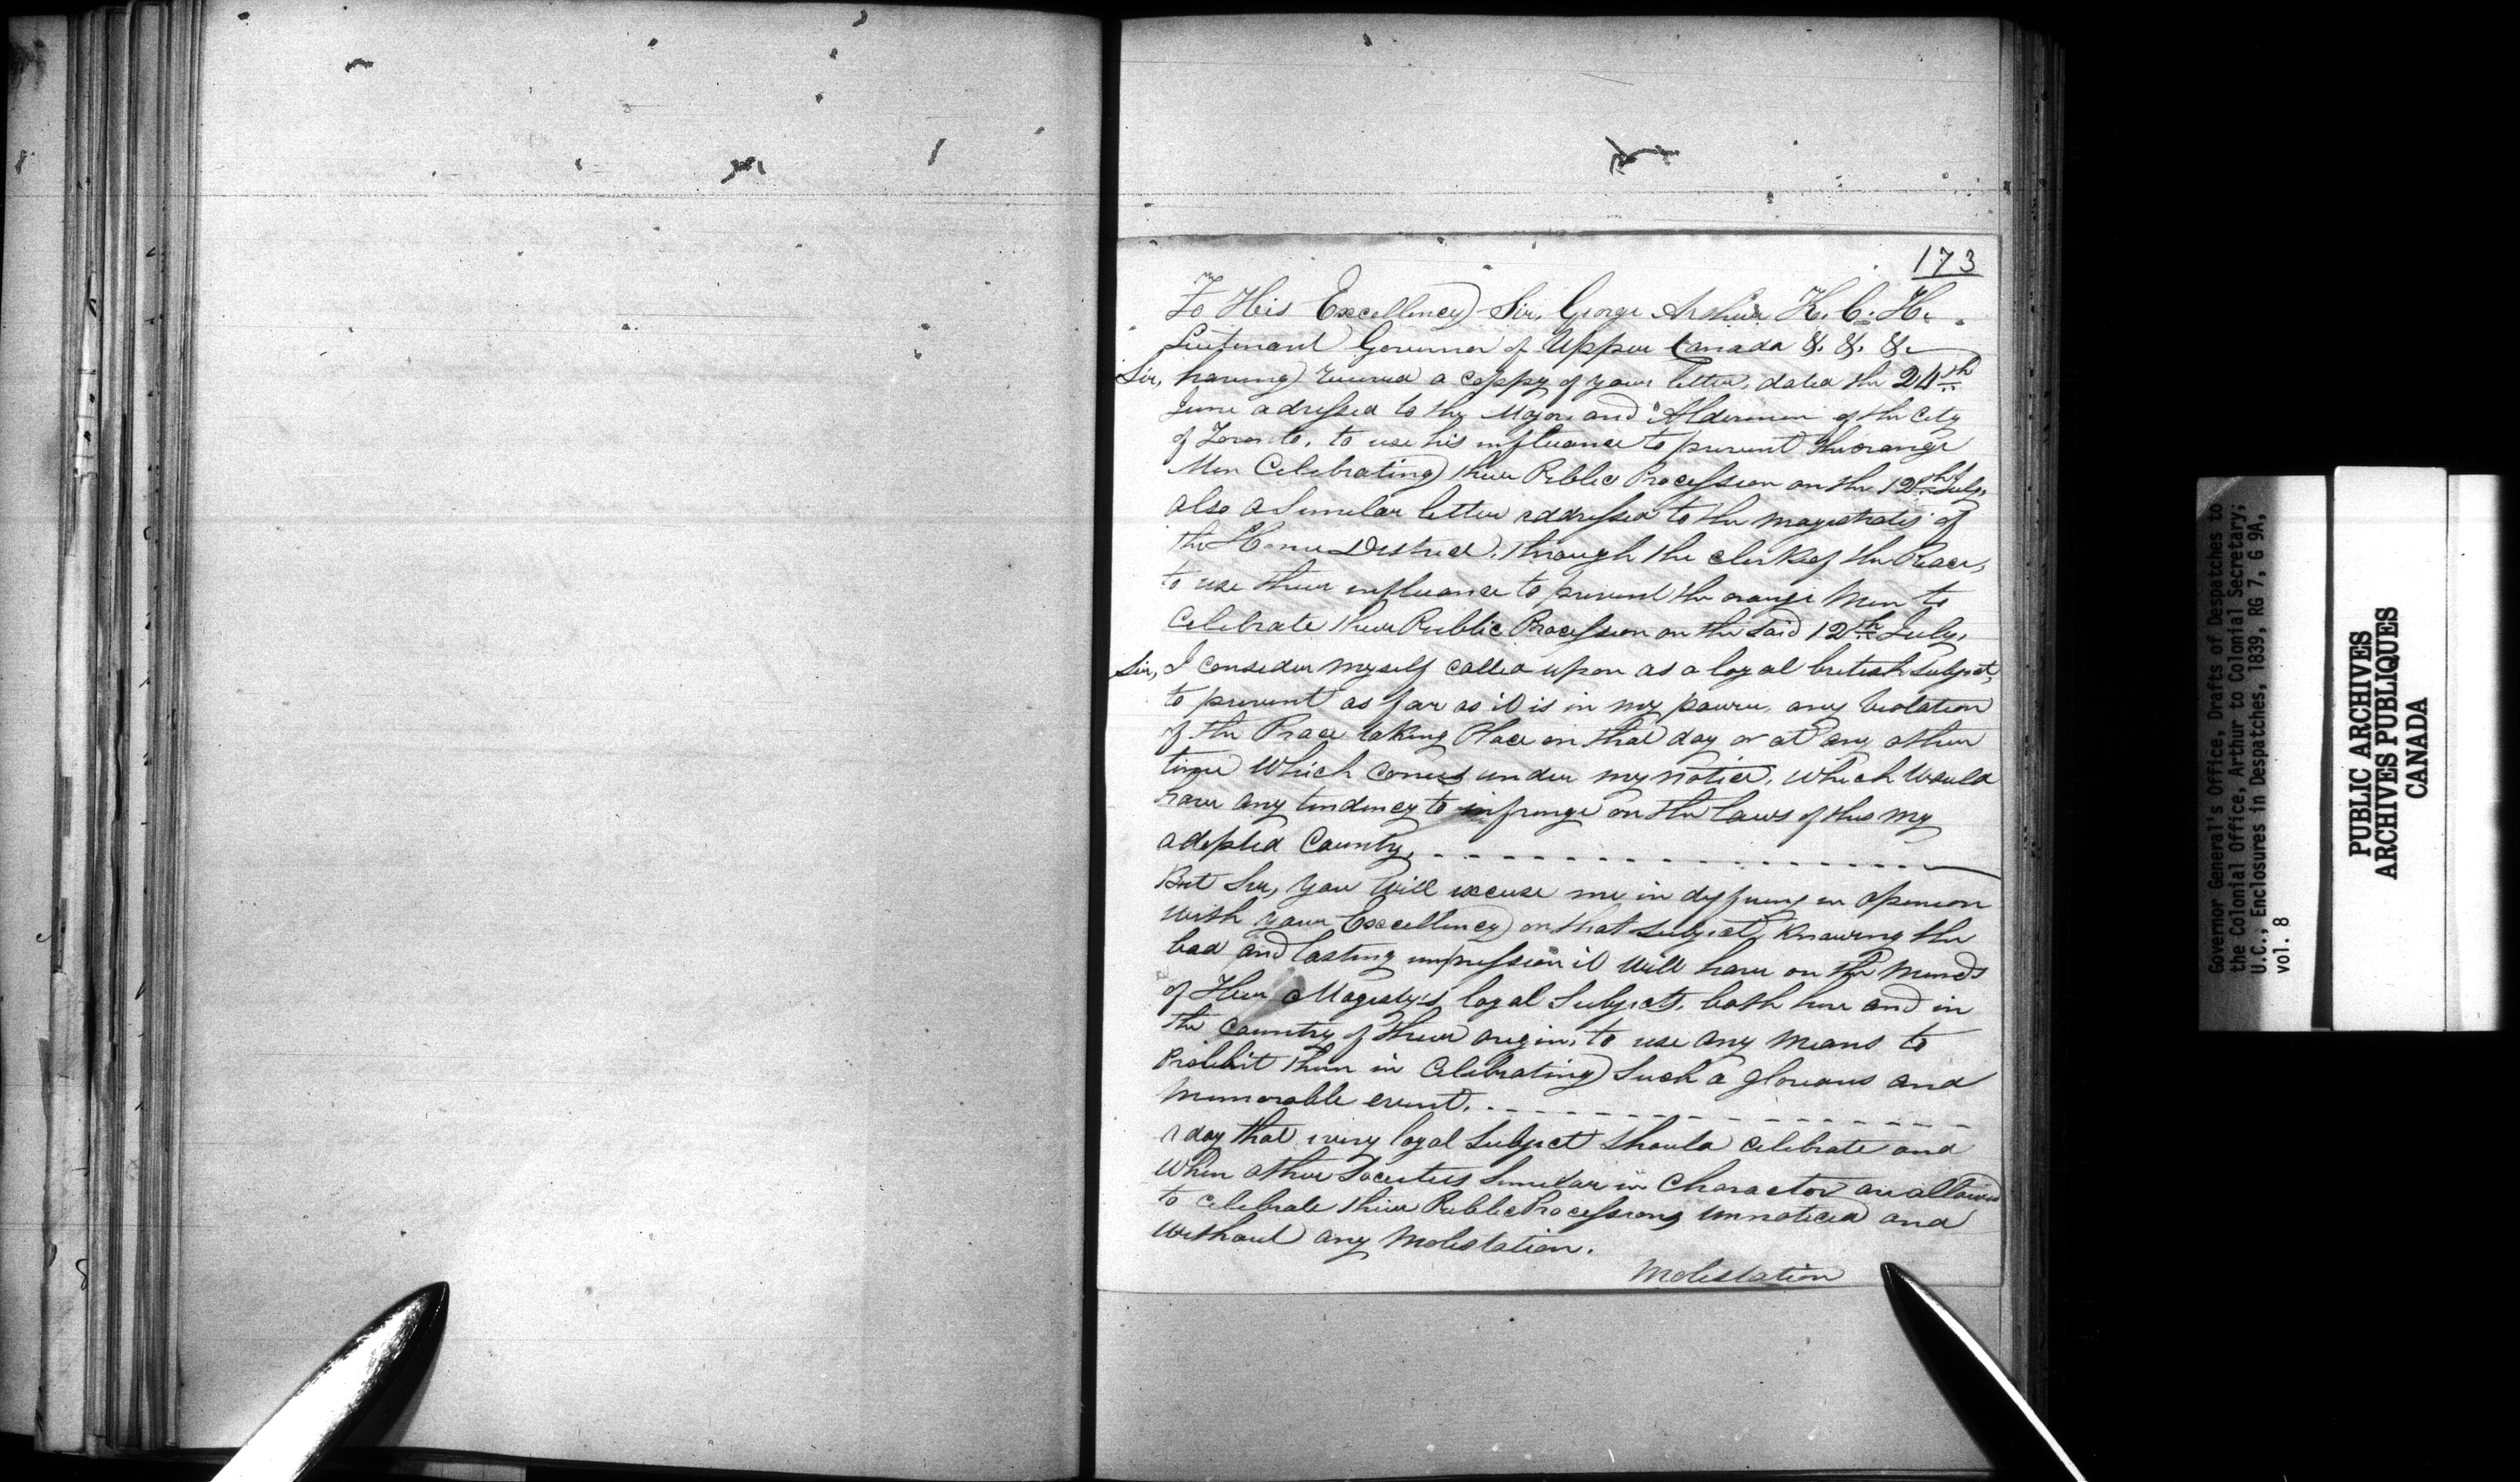 173
To His Excellency Sir, George Arthur K. C. H.
Lieutenant Governor of Upper Canada &. &. &.
Sir, having received a coppy of your letter, dated the 24th
June adressed to the Mayor and Aldermen of the City
of Toronto, to use his influance to prevent the orange
Men Celebrating their Public Procession on the 12th July,
also a Similar letter addressed to the magistrates of
the Home District, through the clerk of the Peace,
to use their influance to prevent the orange Men to
Celebrate their Public Procession on the said 12th July,
Sir, I consider myself called upon as a loyal british subject,
to prevent as far as it is in my power, any violation
of the Peace taking Place on that day or at any other
time Which comes under my notice, which Would
have any tendency to infringe on the laws of this my
adopted Country,
But Sir, you Will excuse me in differing in opinion
with your Excellency on that subject, Knowing the
bad and lasting impression it Will have on the minds
of Her Magesty's loyal Subjects, both here and in
the Country of their origin, to use any means to
Prohibit them in Celebrating Such a glorious and
Memorable event.
A day that every loyal Subject Should celebrate and
When other Societies Similar in Character are allowed
to celebrate their Public Processions unnoticed and
Without any Molestation.
Molestation
Governor General's Office, Drafts of Despatches to
the Colonial Office, Arthur to Colonial Secretary;
U.C., Enclosures in Despatches, 1839, RG 7, G 9A,
vol. 8
PUBLIC ARCHIVES
ARCHIVES PUBLIQUES
CANADA